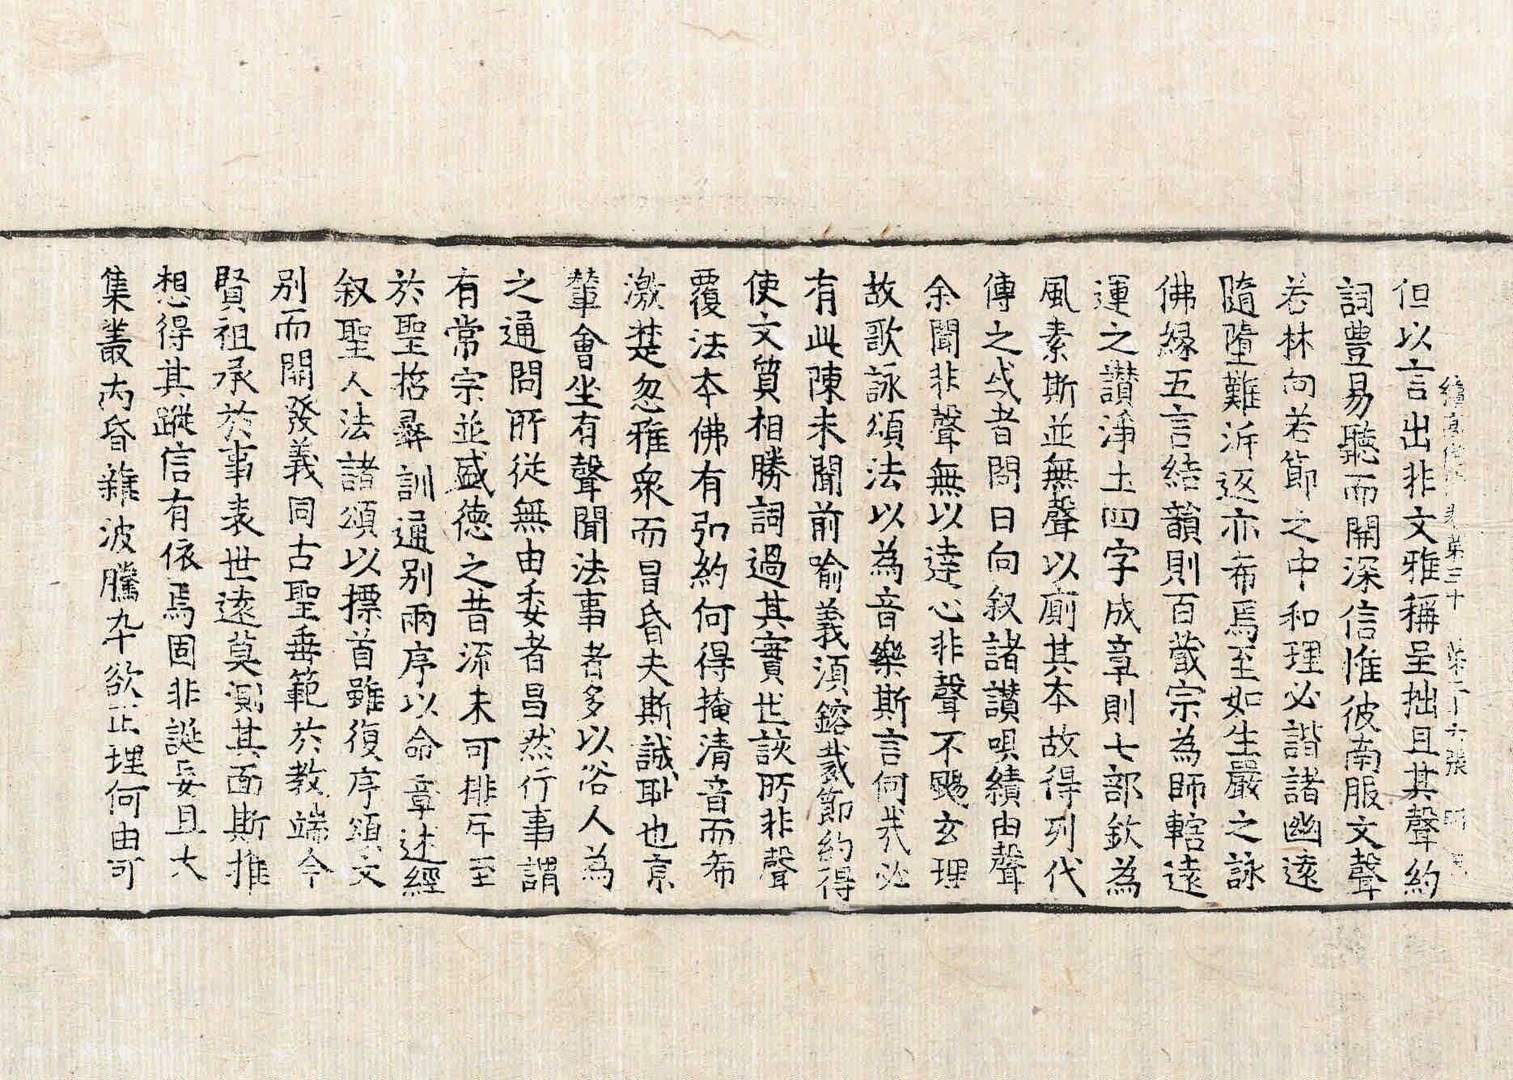 續高僧傳卷第三十　第三十六張
但以言出非文雅稱呈拙且其聲約
詞豊易聽而開深信惟彼南服文聲
若林向若節之中和理必諧諸幽遠
隨墮難泝返亦希焉至如生嚴之詠
佛緣五言結韻則百歲宗為師轄遠
運之讚淨土四字成章則七部欽為
風素斯並無聲以廁其本故得列代
傳之或者問曰向叙諸讚唄績由聲
余聞非聲無以達心非聲不颺玄理
故歌詠頌法以為音樂斯言何哉必
有此陳未聞前喻義須鎔裁節約得
使文質相勝詞過其實世該所非聲
覆法本佛有弘約何得掩清音而希
激楚忽雅衆而冒昏夫斯誠耻也京
輦會坐有聲聞法事者多以俗人為
之通問所從無由委者昌然行事謂
有常宗並盛德之昔流未可排斥至
於聖哲彝訓通别兩序以命章述經
叙聖人法諸頌以摽首雖復序頌文
别而開發義同古聖垂範於教端今
賢祖承於事表世遠莫測其面斯推
想得其蹤信有依焉固非誕妄且大
集叢丙昏雜波騰卆欲正理何由可